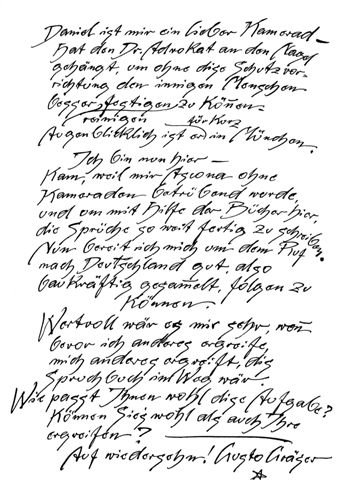 Daniel ist mir ein lieber Kamerad –
hat den Dr. Advokat an den Nagel
gehängt, um ohne dise Schutzvor-
richtung den innigen Menschen
besser festigen zu können.
reinigen für kurz
Augenblicklich ist er in München.
Ich bin nun hier –
kam, weil mir Ascona ohne
Kameraden betrübend wurde
und om mit Hilfe der Bücher hier,
die Sprüche so weit fertig zu schreiben.
Nun bereit ich mich um dem Ruf
nach Deutschland gut, also
baukräftig gesamelt, folgen zu
können.
Wertvoll wär es mir sehr, wen
bevor ich anderes ergreife,
mich anderes ergreift, dis
Spruchbuch im Weg wär.
Wie passt Ihnen wohl dise Aufgabe?
Können Sie's wohl als auch Ihre
ergreifen?
Auf wiedersehn! Gusto Gräser